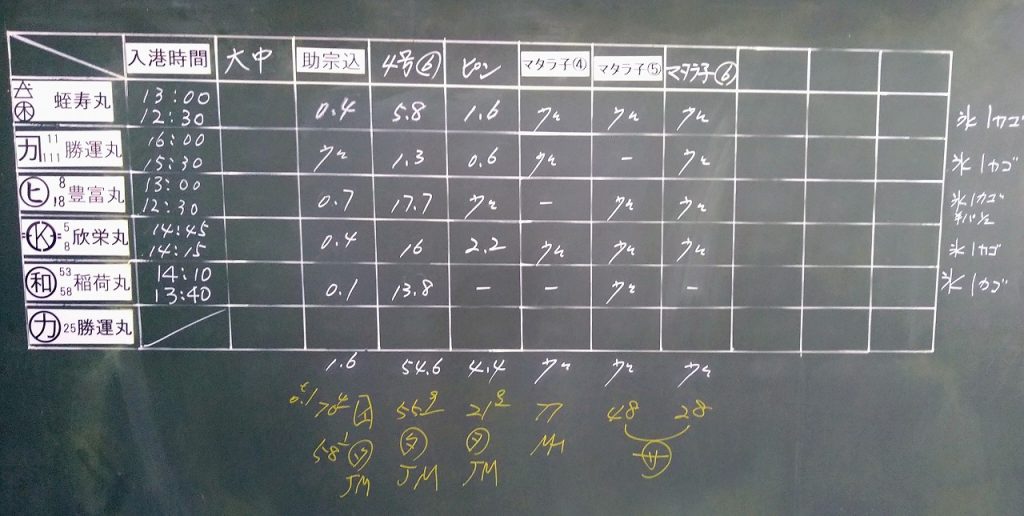 入港時間 大中 助宗込 4号⑥ ピン マタラ子④ マタラ子⑤ マタラ子⑥
六 ㊍ 蛭寿丸 13:00 12:30 0.4 5.8 1.6 ウス ウス ウス 氷1カゴ
カ 11 111 勝運丸 16:00 15:30 ウス 1.3 0.6 ウス - ウス 氷1カゴ
ヒ 8 18 豊富丸 13:00 12:30 0.7 17.7 ウス - ウス ウス 氷1カゴ
K 5 8 欣栄丸 14:45 14:15 0.4 16 2.2 ウス ウス ウス 氷1カゴ
和 53 58 稲荷丸 14:10 13:40 0.1 13.8 - - ウス - 氷1カゴ
カ 25 勝運丸
1.6 54.6 4.4 ウス ウス ウス
0.1 70 55 21 77 48 28
58 マ マ MH サ
JM JM JM